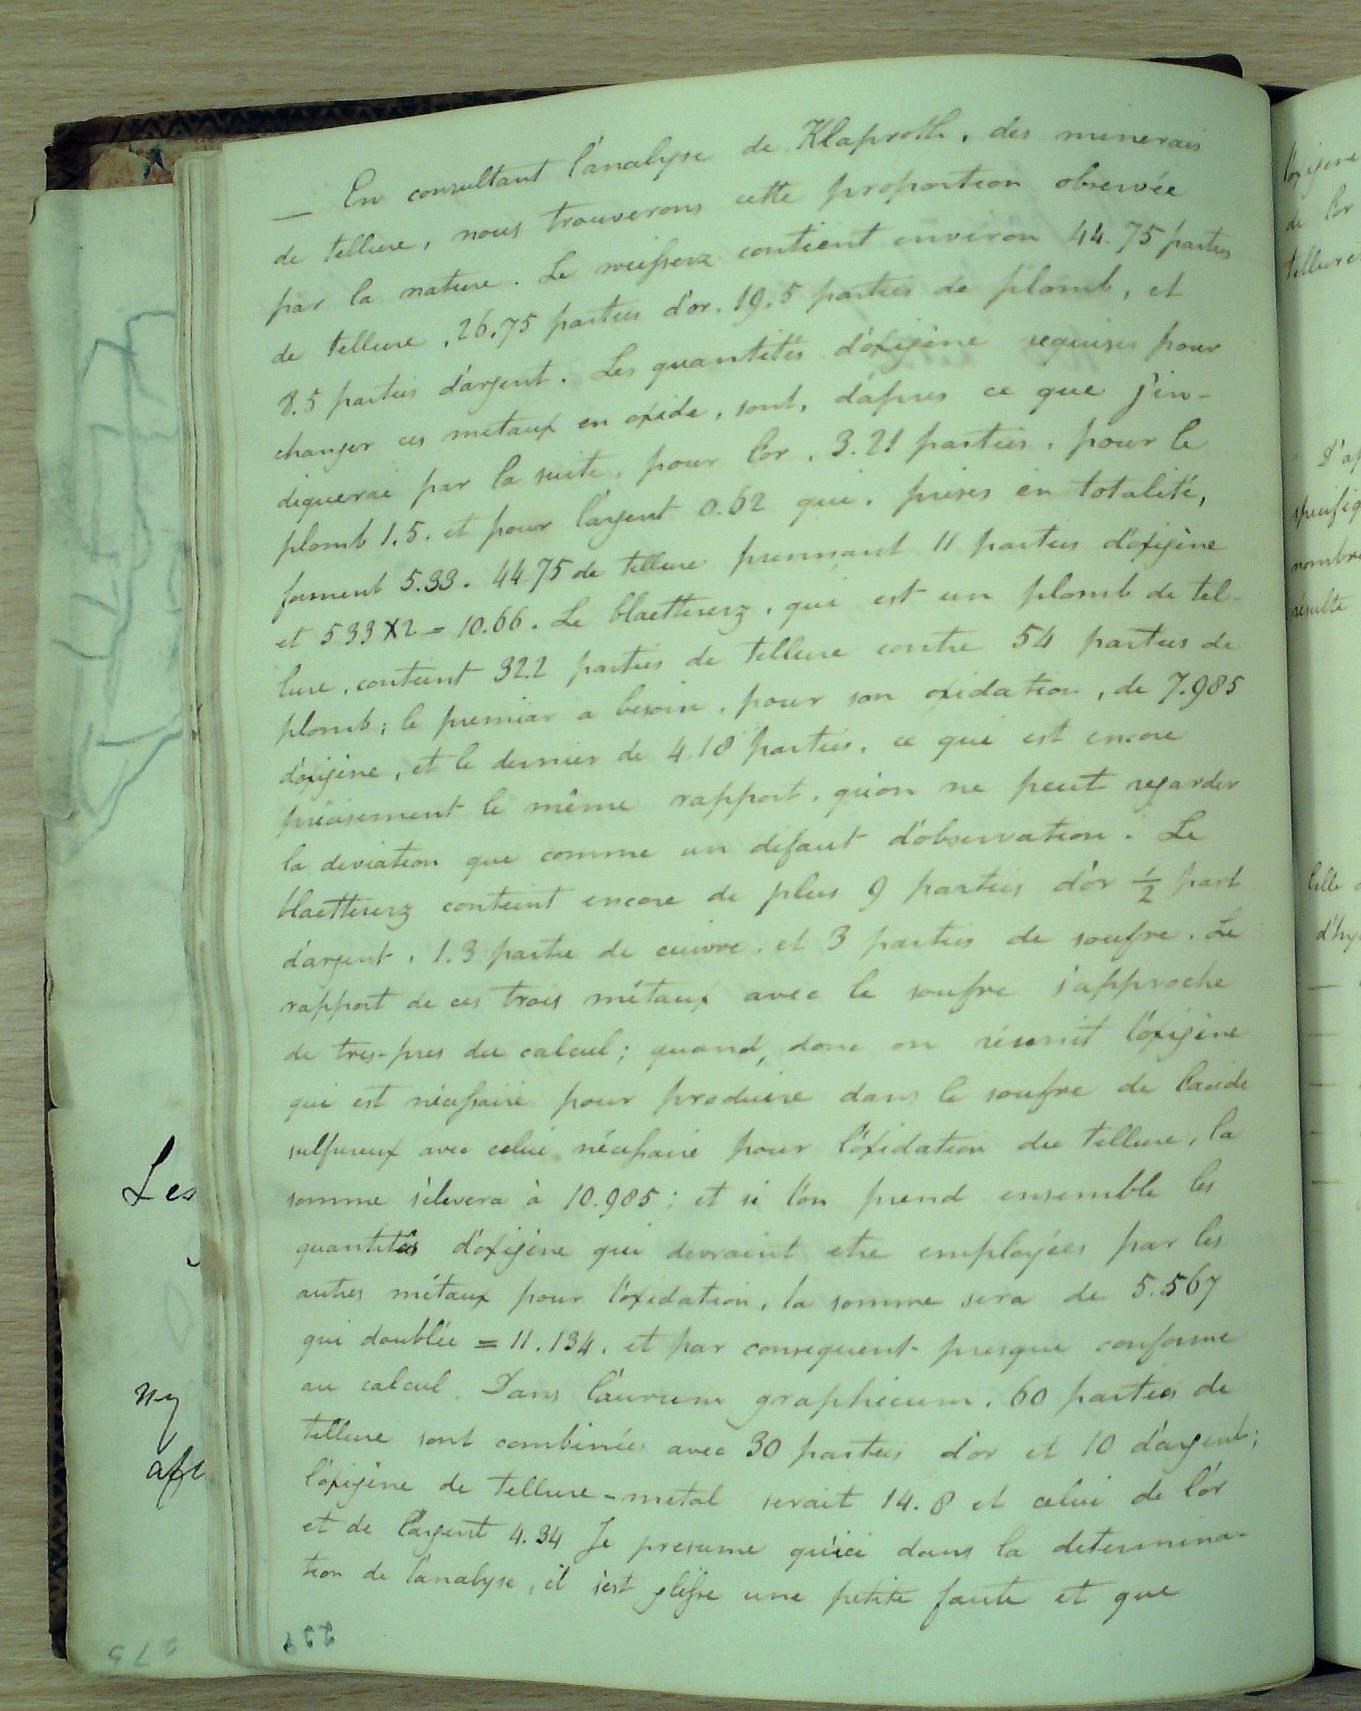 — En consultant l'analyse de Klaproth, des minerais
de tellure, nous trouverons cette proportion observée
par la nature. Le weisserz contient environ 44.75 parties
de tellure, 26.75 parties d'or, 19.5 parties de plomb, et
8.5 parties d'argent. Les quantités d'oxigène requises pour
changer ces metaux en oxide, sont, d'apres ce que j'in-
diquerai par la suite, pour l'or, 3.21 parties, pour le
plomb 1.5. et pour l'argent 0.62 qui, prises en totalité,
forment 5.33. 44.75 de tellure prennant 11 parties d'oxigène
et 533 X 2 = 10.66. Le blaetterez, qui est un plomb de tel-
lure, contient 32.2 parties de tellure contre 54 parties de
plomb; le premiar a besoin, pour son oxidation, de 7.985
d'oxigène, et le dernier de 4.18 parties, ce qui est encore
précisement le même rapport, qu'on ne peut regarder
la deviation que comme un défaut d'observation. Le
blaetterez contient encore de plus 9 parties d'or 1/2 part
d'argent, 1.3 partie de cuivre, et 3 parties de soufre. Le
rapport de ces trois métaux avec le soufre s'approche
de tres-pres du calcul; quand, donc on réunit l'oxigène
qui est nécessaire pour produire dans le soufre de l'acide
sulfureux avec celui nécessaire pour l'oxidation du tellure, la
somme s'elevera à 10.985; et si l'on prend ensemble les
quantités d'oxigène qui devraint etre employées par les
autres métaux pour l'oxidation, la somme sera de 5.567
qui doublée = 11.134, et par consequent presque conforme
au calcul. Dans l'aurum graphicum, 60 parties de
tellure sont combinées avec 30 parties d'or et 10 d'argent;
l'oxigène de tellure-metal serait 14.8 et celui de l'or
et de l'argent 4.34 Je presume qu'ici dans la determina-
tion de l'analyse, il s'est glissé une petite faute et que
Les